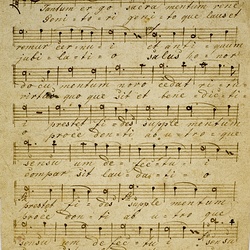 Tantum ergo sacra mentum vene
Geni to ri geni to que laus et
remur cer nu i et anti quum
jubi latio salus honor
do cu mentum novo cedat ri
virtus quo que sit et bene dicti
prestet fi des supple mentum
proce denti ab u tro que
sensu um de fectu i
compar sit lau da ti o
prestet fi des supple mentum
proce denti ab utro que
sensu um de fectu i sensu